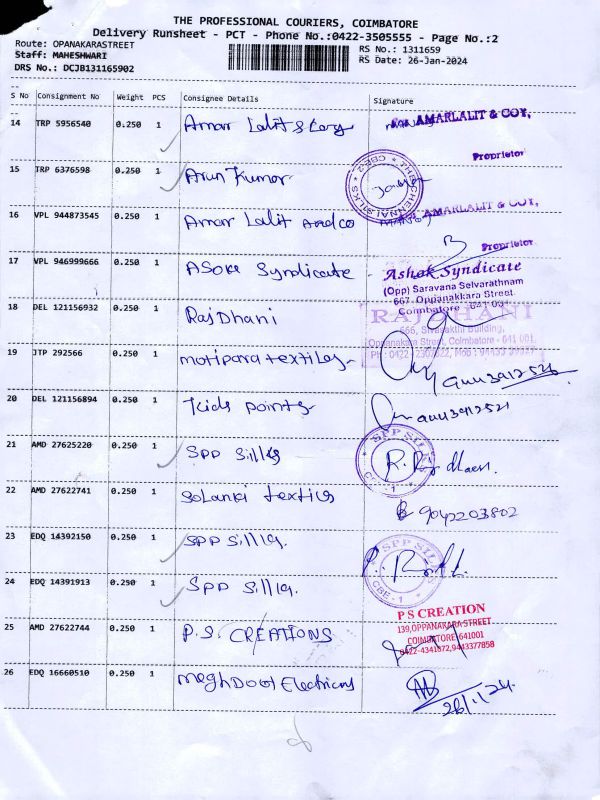 THE PROFESSIONAL COURIERS, COIMBATORE
Delivery Runsheet - PCT - Phone No.:0422-3505555 - Page No.:2
Route: OPANAKARASTREET
Staff: MAHESHWARI
DRS No.: DCJB131165902
RS No.: 1311659
RS Date: 26-Jan-2024
S No Consignment No Weight PCS Consignee Details Signature
14 TRP 5956540 0.250 1 Amar Lalit & Coy AMARLALIT & COY,
Proprietor
15 TRP 6376598 0.250 1 Arun Kumar THE CHENNAI SILKS CBE-2
16 VPL 944873545 0.250 1 Amar Lalit And co AMARLALIT & COY,
Proprietor
17 VPL 946999666 0.250 1 ASOKE Syndicate Ashok Syndicate
(Opp) Saravana Selvarathnam
667, Oppanakkara Street
Coimbatore - 641 001
18 DEL 121156932 0.250 1 RajDhani RAJDHANI
666, Sivasakthi Building,
Oppanakara Street, Coimbatore - 641 001.
19 JTP 292566 0.250 1 motipara textiles
20 DEL 121156894 0.250 1 Kids points
21 AMD 27625220 0.250 1 SPP Sillks SPP SILKS CBE-1
22 AMD 27622741 0.250 1 Solanki textils 9042203802
23 EDQ 14392150 0.250 1 SPP Sillks. SPP SILKS CBE-1
24 EDQ 14391913 0.250 1 SPP Sillks.
25 AMD 27622744 0.250 1 P.S. CREATIONS P S CREATION
139, OPPANAKARA STREET
COIMBATORE 641001
0422-4341072, 9443377858
26 EDQ 16660510 0.250 1 meghDoot Electricans
26/1/24.